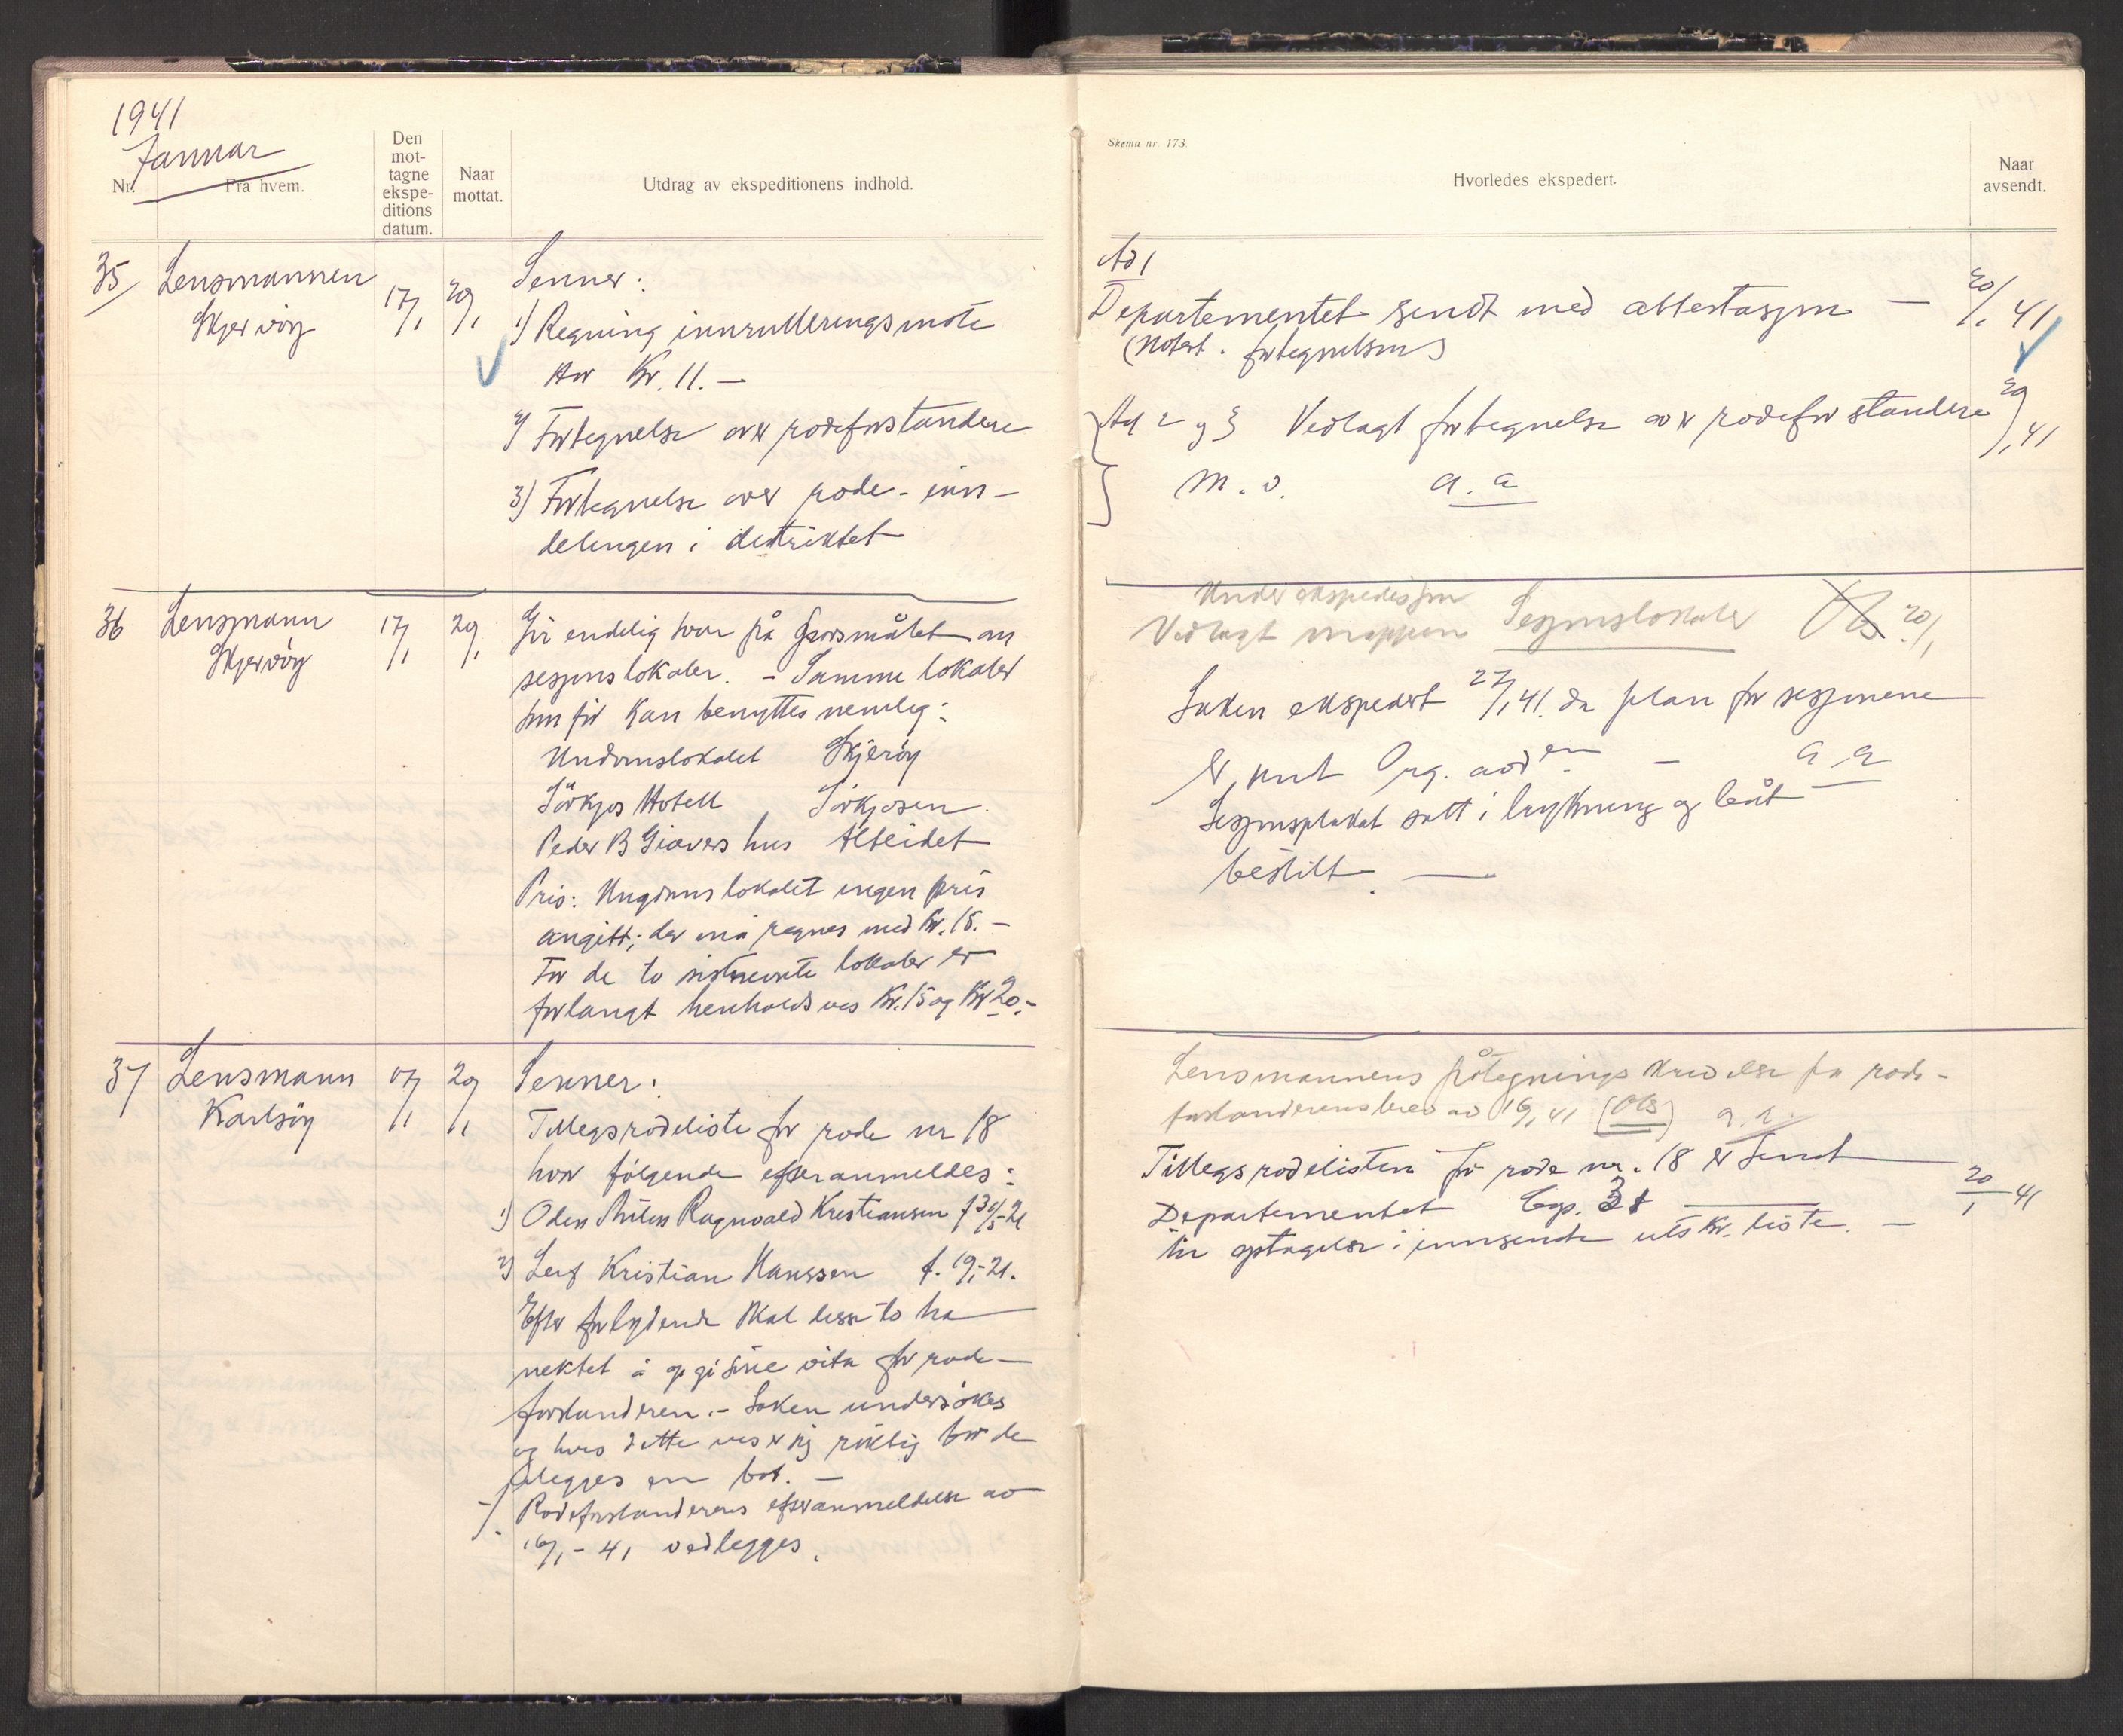 1941
Januar
Nr.
Fra hvem.
Den
mot-
tagne
ekspe-
ditions
datum.
Naar
mottat.
Utdrag av ekspeditionens indhold.
35 Lensmannen 17/1 20/1 Senner:
Skjervöy 1) Regning innrulleringsmöte
Kr. 11.–
2) Fortegnelse over rodeforstandere
3) Fortegnelse over rode-inn-
delingen i distriktet
36 Lensmann 17/1 20/1 Gir endelig svar på spörsmålet om
Skjervöy sesjonslokaler. – Samme lokaler
som för kan benyttes nemlig:
Ungdomslokalet Skjervöy
Sörkjos Hotell Sörkjosen.
Peder B Giævers hus Alteidet
Pris: Ungdomslokalet ingen pris
angitt; der må regnes med Kr. 15.–
For de to sistnevnte lokaler er
forlangt henholdsvis Kr. 15 og Kr 20.–
37 Lensmann 17/1 20/1 Senner:
Karlsöy Tilleggsrodeliste for rode nr 18
hvor fölgende efteranmeldes:
1) Oden Ragnvald Kristiansen f 30/5-21
2) Leif Kristian Hanssen f. 19/1-21.
Efter forlydende skal disse to ha
nektet å opgi sine vita for rode-
forstanderen. – Saken undersökes
og hvis dette viser sig riktig bör de
ilegges en bot. –
-/. Rodeforstanderens efteranmeldelse av
16/1-41 vedlegges.
Skema nr. 173.
Hvorledes ekspedert.
Naar
avsendt.
Ad 1
Departementet sendt med attestasjon – 20/1 41
(Notert i fortegnelsen)
Ad 2 og 3 Vedlagt fortegnelse over rodeforstandere 20/1 41
m. v. a. a
Under ekspedisjon
Vedlagt mappen Sesjonslokaler Ols 20/1
Saken ekspedert 27/1 41. da plan for sesjonene
er sendt Org. avd en – a a
Sesjonsplakat satt i trykning og båt
bestilt. –
Lensmannens påtegnings på rode-
forstanderens brev av 16/1 41 (Ols) a. a.
Tilleggsrodelisten for rode nr. 18 er sendt
Departementet 20/1 41
til optagelse i innsendte utskr. liste. –